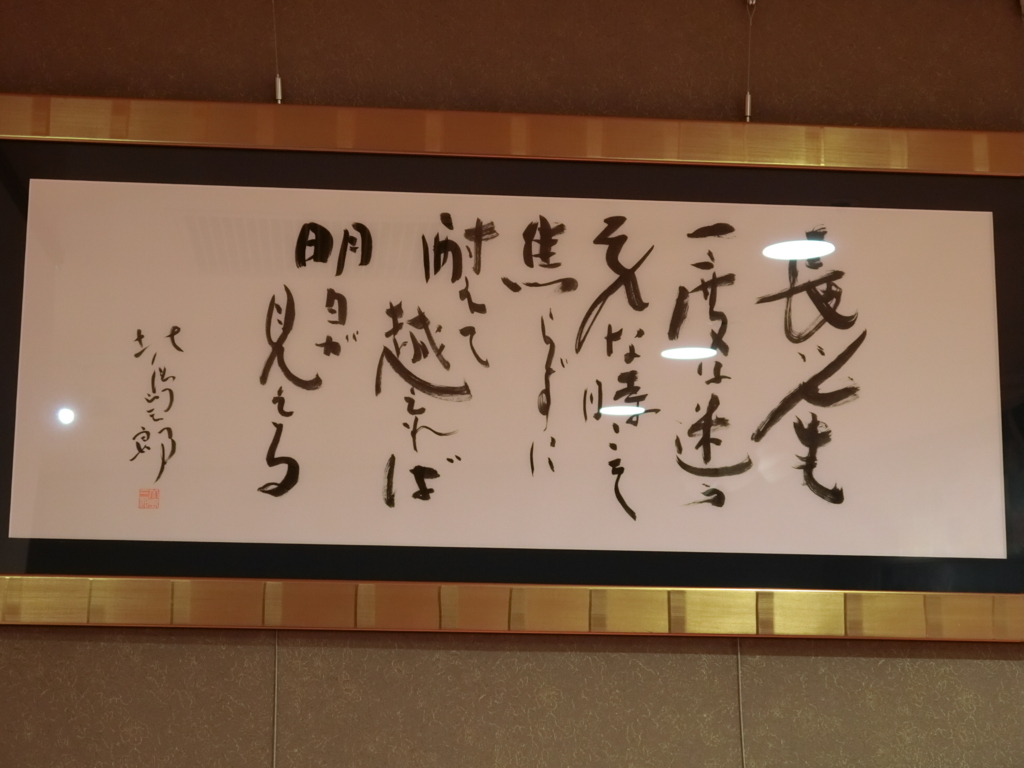 長い人生
一度は迷う
そんな時こそ
焦らずに
耐えて
越えれば
明日が
見える